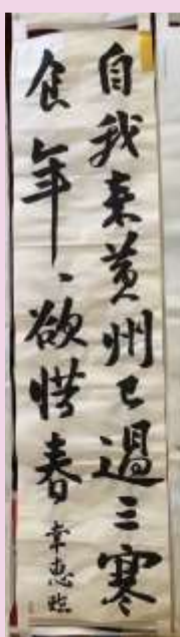 自我来黄州已過三寒
食年〻欲惜春
章惠临